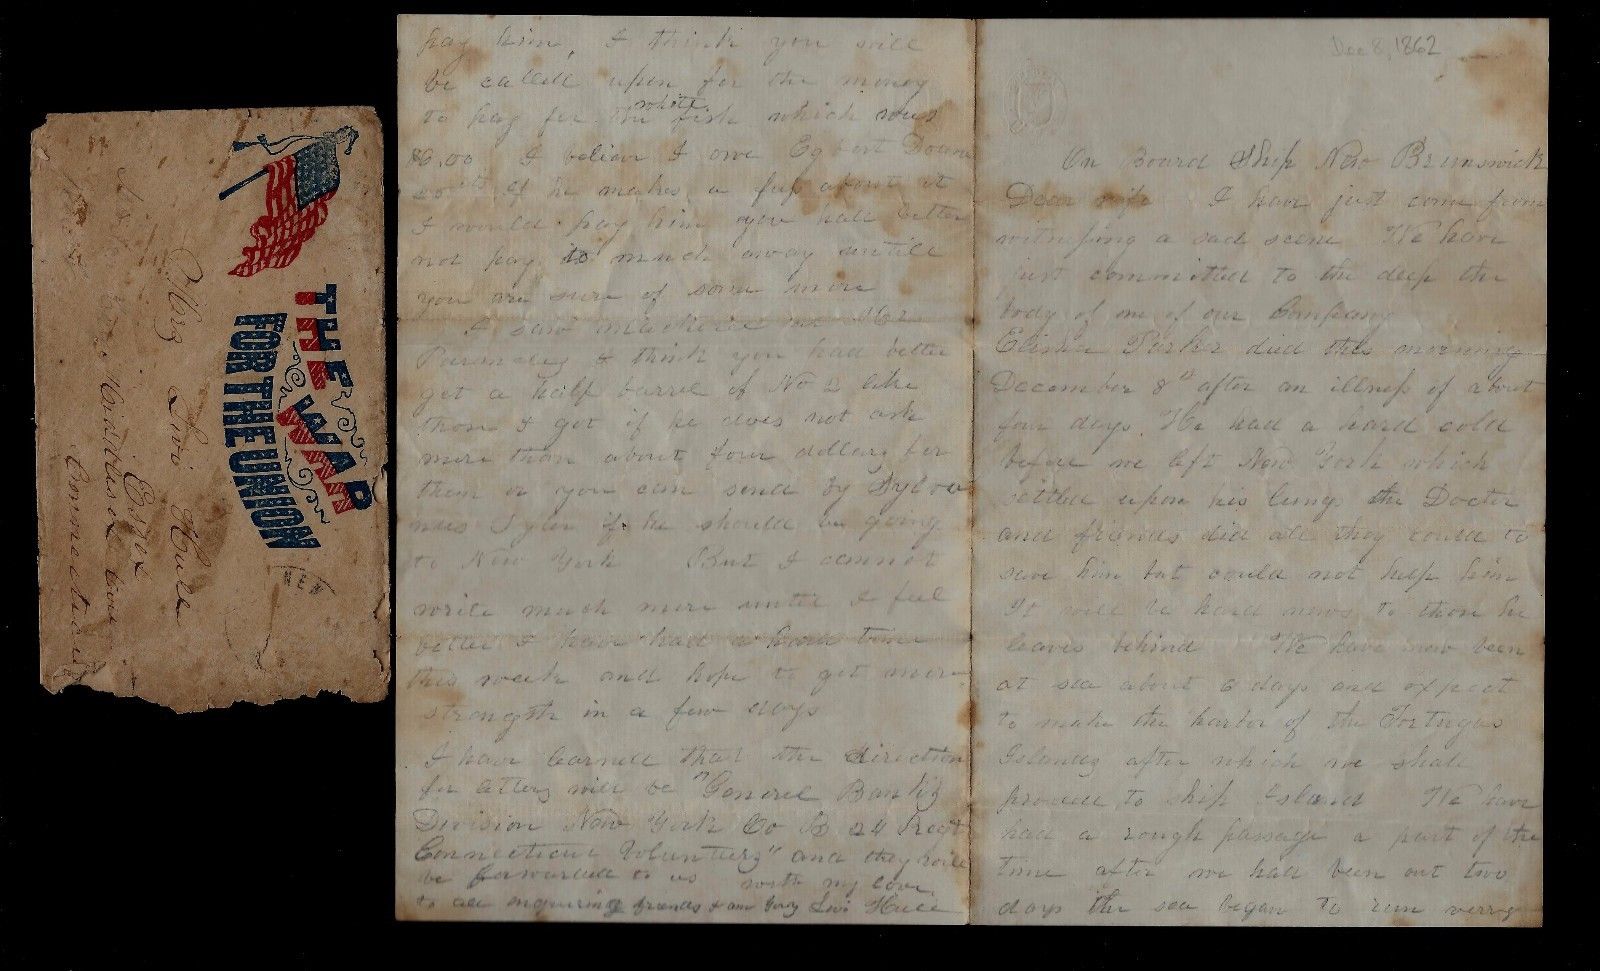 THE WAR
FOR THE UNION
NEW
Mrs Levi Hull
Essex
Middlesex
Connecticut
pay him, I think you will
be called upon for the money
to pay for the white fish which was
I believe I owe Egbert
cts if he makes a fuss about it
I would pay him you had better
not pay to much away untill
you are sure of some more
I saw mackerel
I think you had better
get a half barrel of No 2 like
those I got if he does not ask
more than about four dollars for
them or you can send by Sylva
nus Tyler if he should be going
to New York But I cannot
write much more until I feel
better I have had a hard time
this week and hope to get more
strength in a few days
I have learned that the direction
for letters will be "General Banks
Division New York Co B 24 Regt
Connecticut Volunteers" and they will
be forwarded to us with my love
to all enquiring friends I am yours Levi Hull
Dec 8, 1862
On Board Ship New Brunswick
Dear wife I have just come from
witnessing a sad scene We have
just committed to the deep the
body of one of our Company
Elisha Parker died this morning
December 8th after an illness of about
four days. He had a hard cold
before we left New York which
settled upon his lungs the Doctor
and friends did all they could to
save him but could not help him
It will be hard news to those he
leaves behind We have now been
at sea about 6 days and expect
to make the harbor of the Tortugas
Islands after which we shall
proceed to Ship Island We have
had a rough passage a part of the
time after we had been out two
days the sea began to run verry